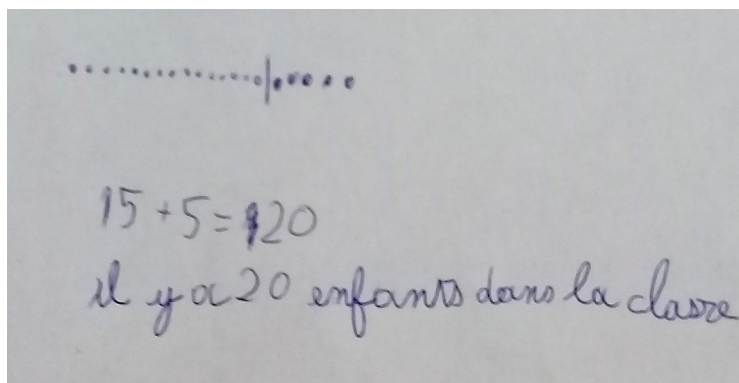 15 + 5 = 20
il y a 20 enfants dans la classe